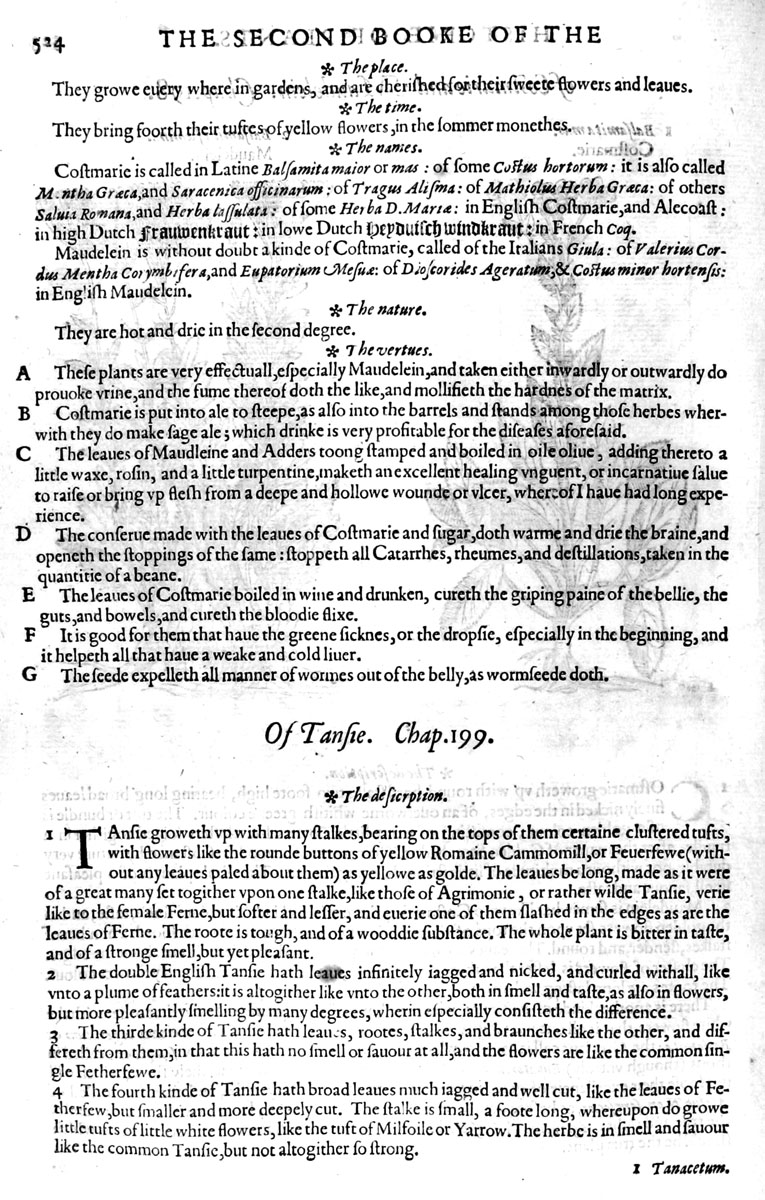 524 THE SECOND BOOKE OF THE
* The place.
They growe euery where in gardens, and are cherished for their sweete flowers and leaues.
* The time.
They bring foorth their tuftes of yellow flowers, in the sommer monethes.
* The names.
Costmarie is called in Latine Balsamita maior or mas: of some Costus hortorum: it is also called
Mentha Græca, and Saracenica officinarum: of Tragus Alisma: of Mathiolus Herba Græca: of others
Saluia Romana, and Herba lassulata: of some Herba D. Mariæ: in English Costmarie, and Alecoast:
in high Dutch Frauwenkraut: in lowe Dutch Heyduisch windkraut: in French Coq.
Maudelein is without doubt a kinde of Costmarie, called of the Italians Giula: of Valerius Cor-
dus Mentha Corymbifera, and Eupatorium Mesuæ: of Dioscorides Ageratum, & Costus minor hortensis:
in English Maudelein.
* The nature.
They are hot and drie in the second degree.
* The vertues.
A These plants are very effectuall, especially Maudelein, and taken either inwardly or outwardly do
prouoke vrine, and the fume thereof doth the like, and mollifieth the hardnes of the matrix.
B Costmarie is put into ale to steepe, as also into the barrels and stands among those herbes wher-
with they do make sage ale; which drinke is very profitable for the diseases aforesaid.
C The leaues of Maudleine and Adders toong stamped and boiled in oile oliue, adding thereto a
little waxe, rosin, and a little turpentine, maketh an excellent healing vnguent, or incarnatiue salue
to raise or bring vp flesh from a deepe and hollowe wounde or vlcer, whereof I haue had long expe-
rience.
D The conserue made with the leaues of Costmarie and sugar, doth warme and drie the braine, and
openeth the stoppings of the same: stoppeth all Catarrhes, rheumes, and destillations, taken in the
quantitie of a beane.
E The leaues of Costmarie boiled in wine and drunken, cureth the griping paine of the bellie, the
guts, and bowels, and cureth the bloodie flixe.
F It is good for them that haue the greene sicknes, or the dropsie, especially in the beginning, and
it helpeth all that haue a weake and cold liuer.
G The seede expelleth all manner of wormes out of the belly, as wormseede doth.
Of Tansie. Chap. 199.
* The desicrption.
1 TAnsie groweth vp with many stalkes, bearing on the tops of them certaine clustered tufts,
with flowers like the rounde buttons of yellow Romaine Cammomill, or Feuerfewe (with-
out any leaues paled about them) as yellowe as golde. The leaues be long, made as it were
of a great many set togither vpon one stalke, like those of Agrimonie, or rather wilde Tansie, verie
like to the female Ferne, but softer and lesser, and euerie one of them slashed in the edges as are the
leaues of Ferne. The roote is tough, and of a wooddie substance. The whole plant is bitter in taste,
and of a stronge smell, but yet pleasant.
2 The double English Tansie hath leaues infinitely iagged and nicked, and curled withall, like
vnto a plume of feathers: it is altogither like vnto the other, both in smell and taste, as also in flowers,
but more pleasantly smelling by many degrees, wherin especially consisteth the difference.
3 The thirde kinde of Tansie hath leaues, rootes, stalkes, and braunches like the other, and dif-
fereth from them, in that this hath no smell or sauour at all, and the flowers are like the common sin-
gle Fetherfewe.
4 The fourth kinde of Tansie hath broad leaues much iagged and well cut, like the leaues of Fe-
therfew, but smaller and more deepely cut. The stalke is small, a foote long, whereupon do growe
little tufts of little white flowers, like the tuft of Milfoile or Yarrow. The herbe is in smell and sauour
like the common Tansie, but not altogither so strong.
1 Tanacetum.